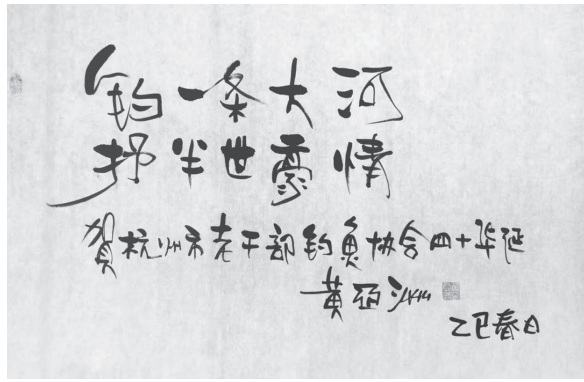 钓一条大河
抒半世豪情
贺杭州市老干部钓鱼协会四十华诞
黄亚洲
乙巳春日